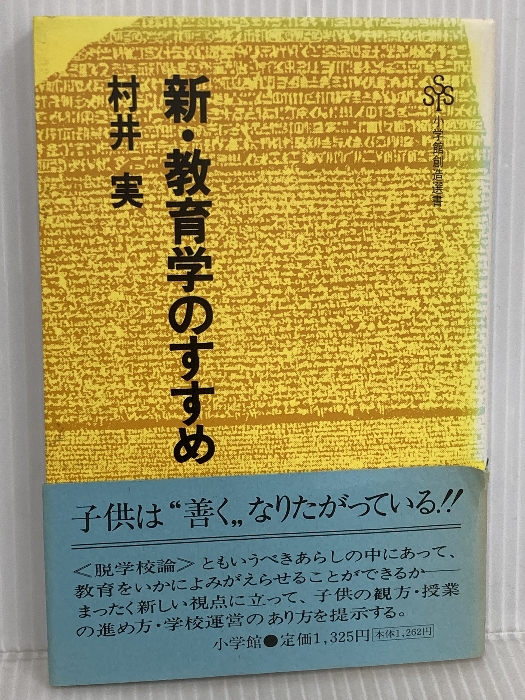 新・教育学のすすめ
村井 実
SSSS
小学館創造選書
子供は“善く„なりたがっている!!
＜脱学校論＞ともいうべきあらしの中にあって、
教育をいかによみがえらせることができるか——
まったく新しい視点に立って、子供の観方・授業
の進め方・学校運営のあり方を提示する。
小学館●定価1,325円 本体1,262円